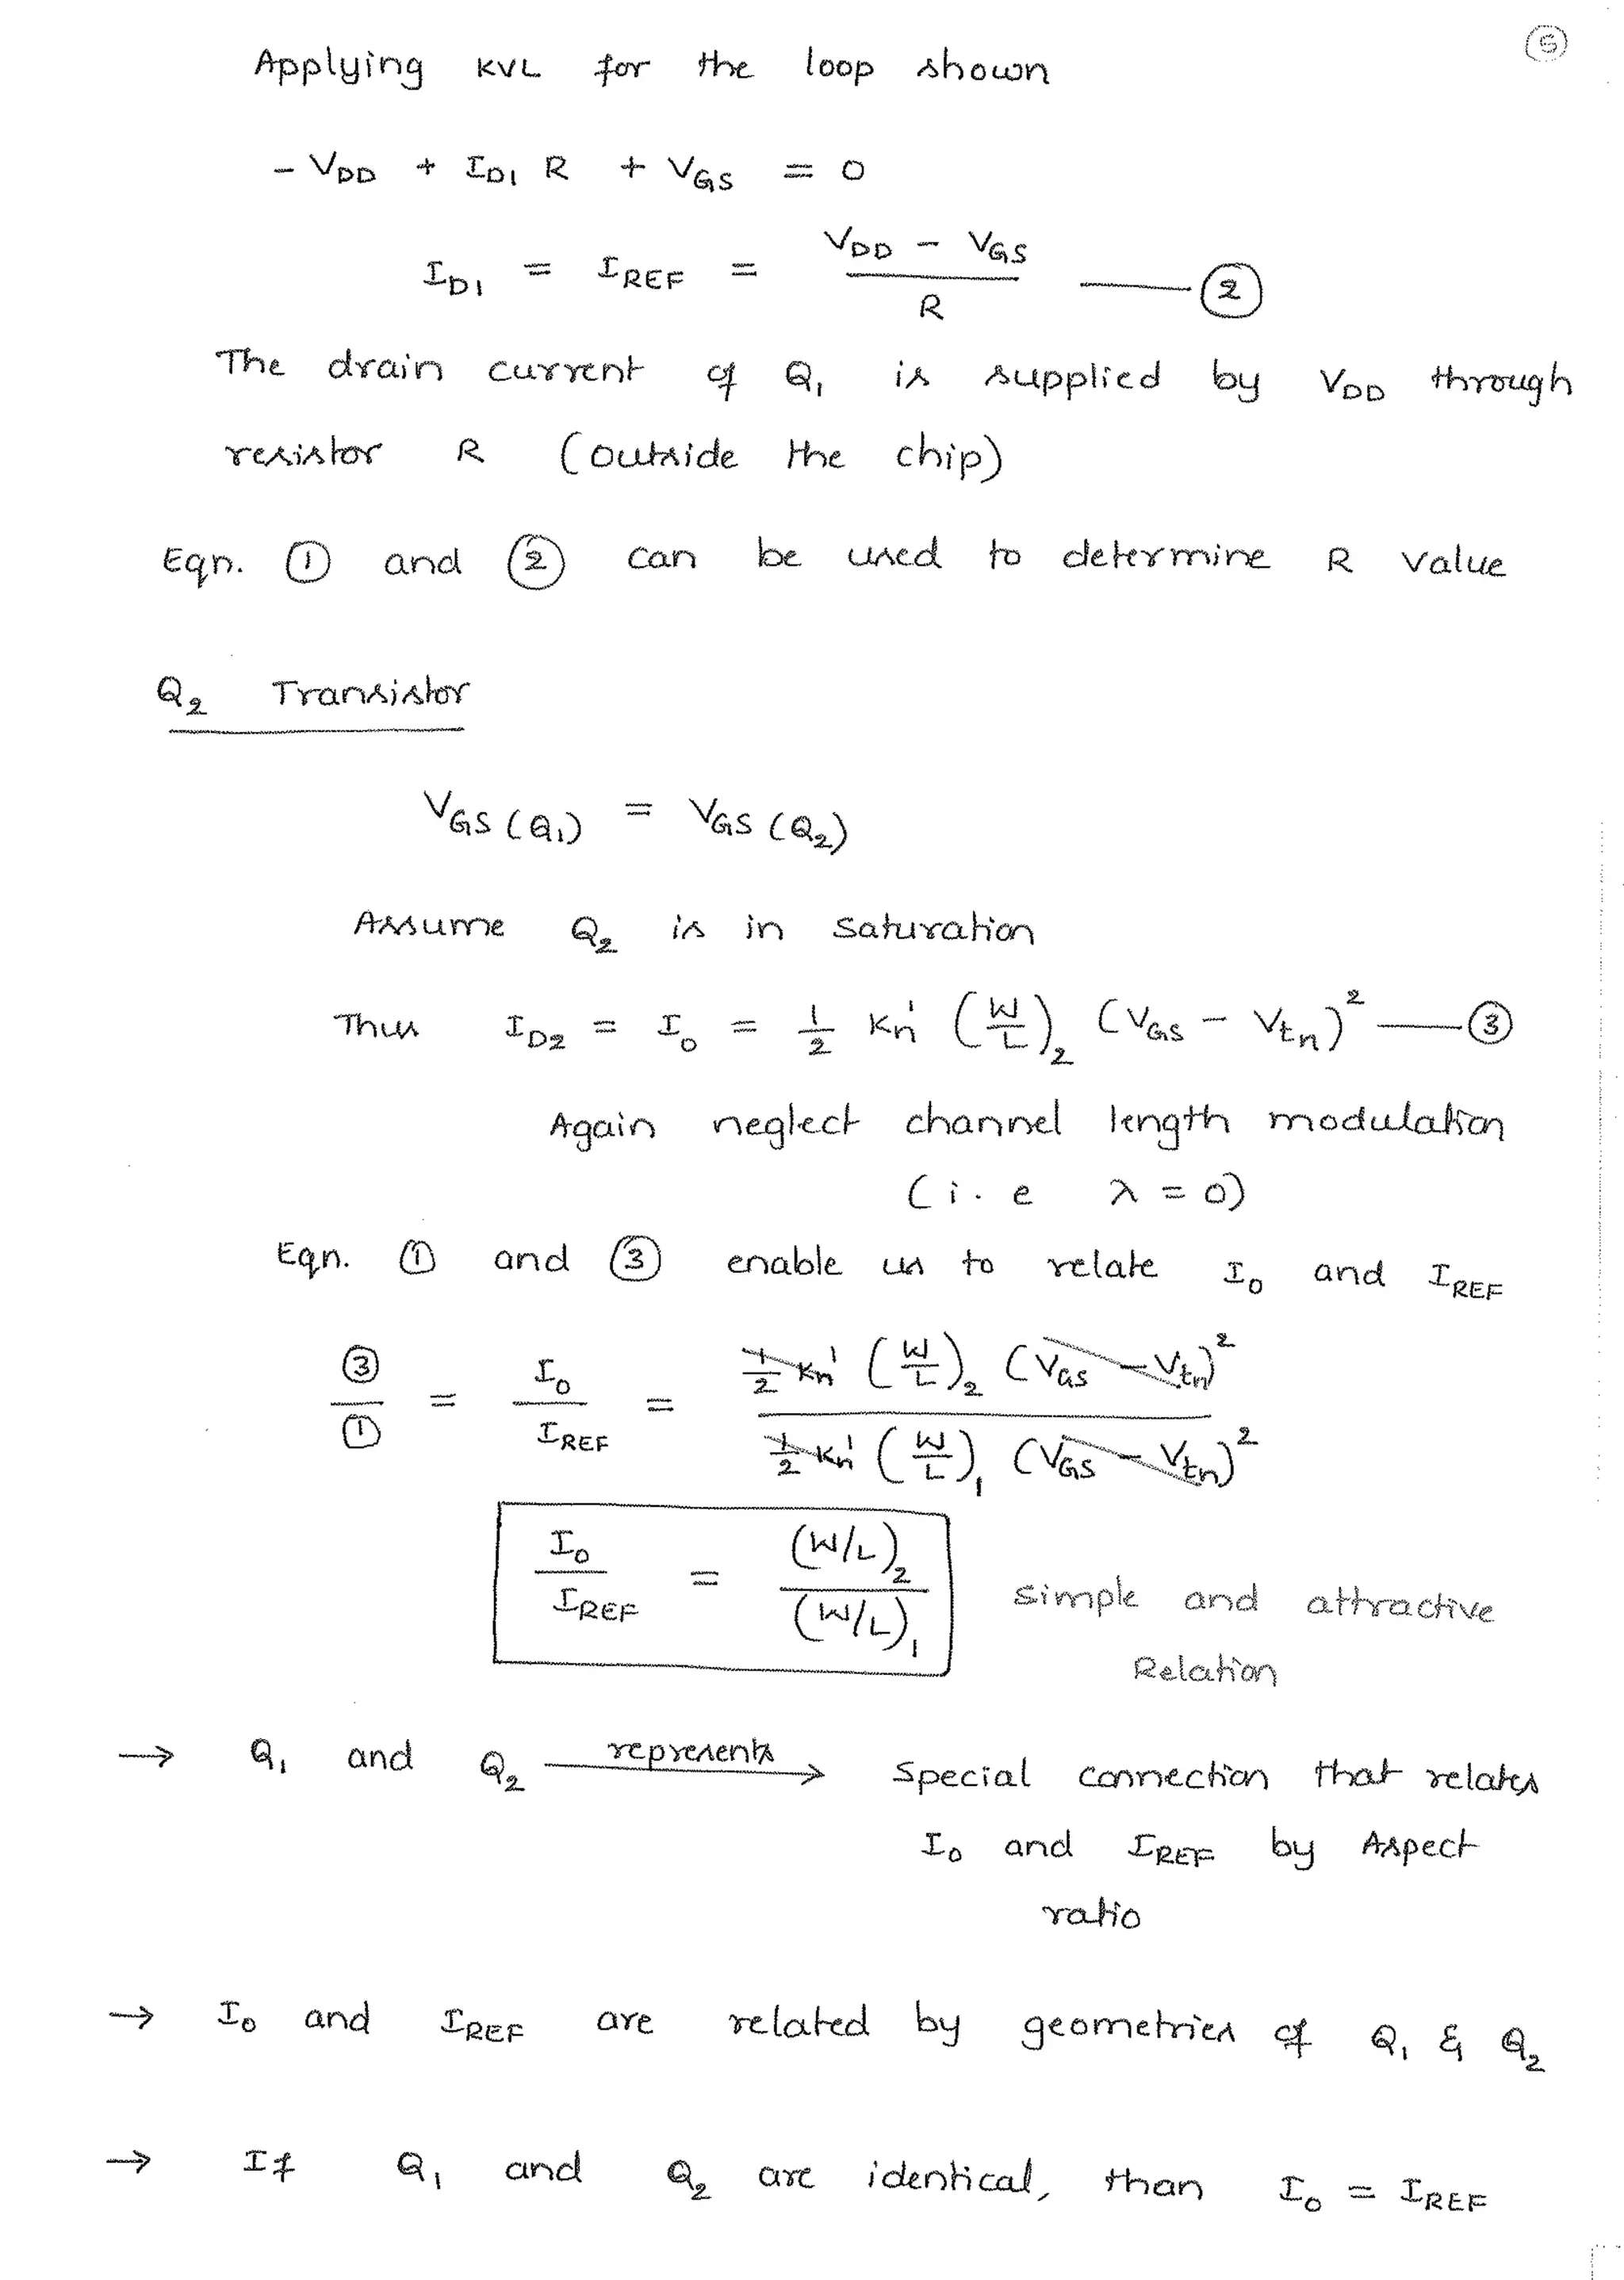 5
Applying KVL for the loop shown
- V_DD + I_D1 R + V_GS = 0
I_D1 = I_REF = (V_DD - V_GS) / R —— ②
The drain current of Q₁ is supplied by V_DD through
resistor R (outside the chip)
Eqn. ① and ② can be used to determine R value
Q₂ Transistor
V_GS (Q₁) = V_GS (Q₂)
Assume Q₂ is in saturation
Thus I_D2 = I_o = 1/2 Kn' (W/L)₂ (V_GS - V_tn)² —— ③
Again neglect channel length modulation
(i.e λ = 0)
Eqn. ① and ③ enable us to relate I_o and I_REF
③/① = I_o / I_REF = 1/2 Kn' (W/L)₂ (V_GS - V_tn)² / 1/2 Kn' (W/L)₁ (V_GS - V_tn)²
I_o / I_REF = (W/L)₂ / (W/L)₁ simple and attractive
Relation
→ Q₁ and Q₂ represents → special connection that relates
I_o and I_REF by Aspect
ratio
→ I_o and I_REF are related by geometries of Q₁ & Q₂
→ If Q₁ and Q₂ are identical, than I_o = I_REF